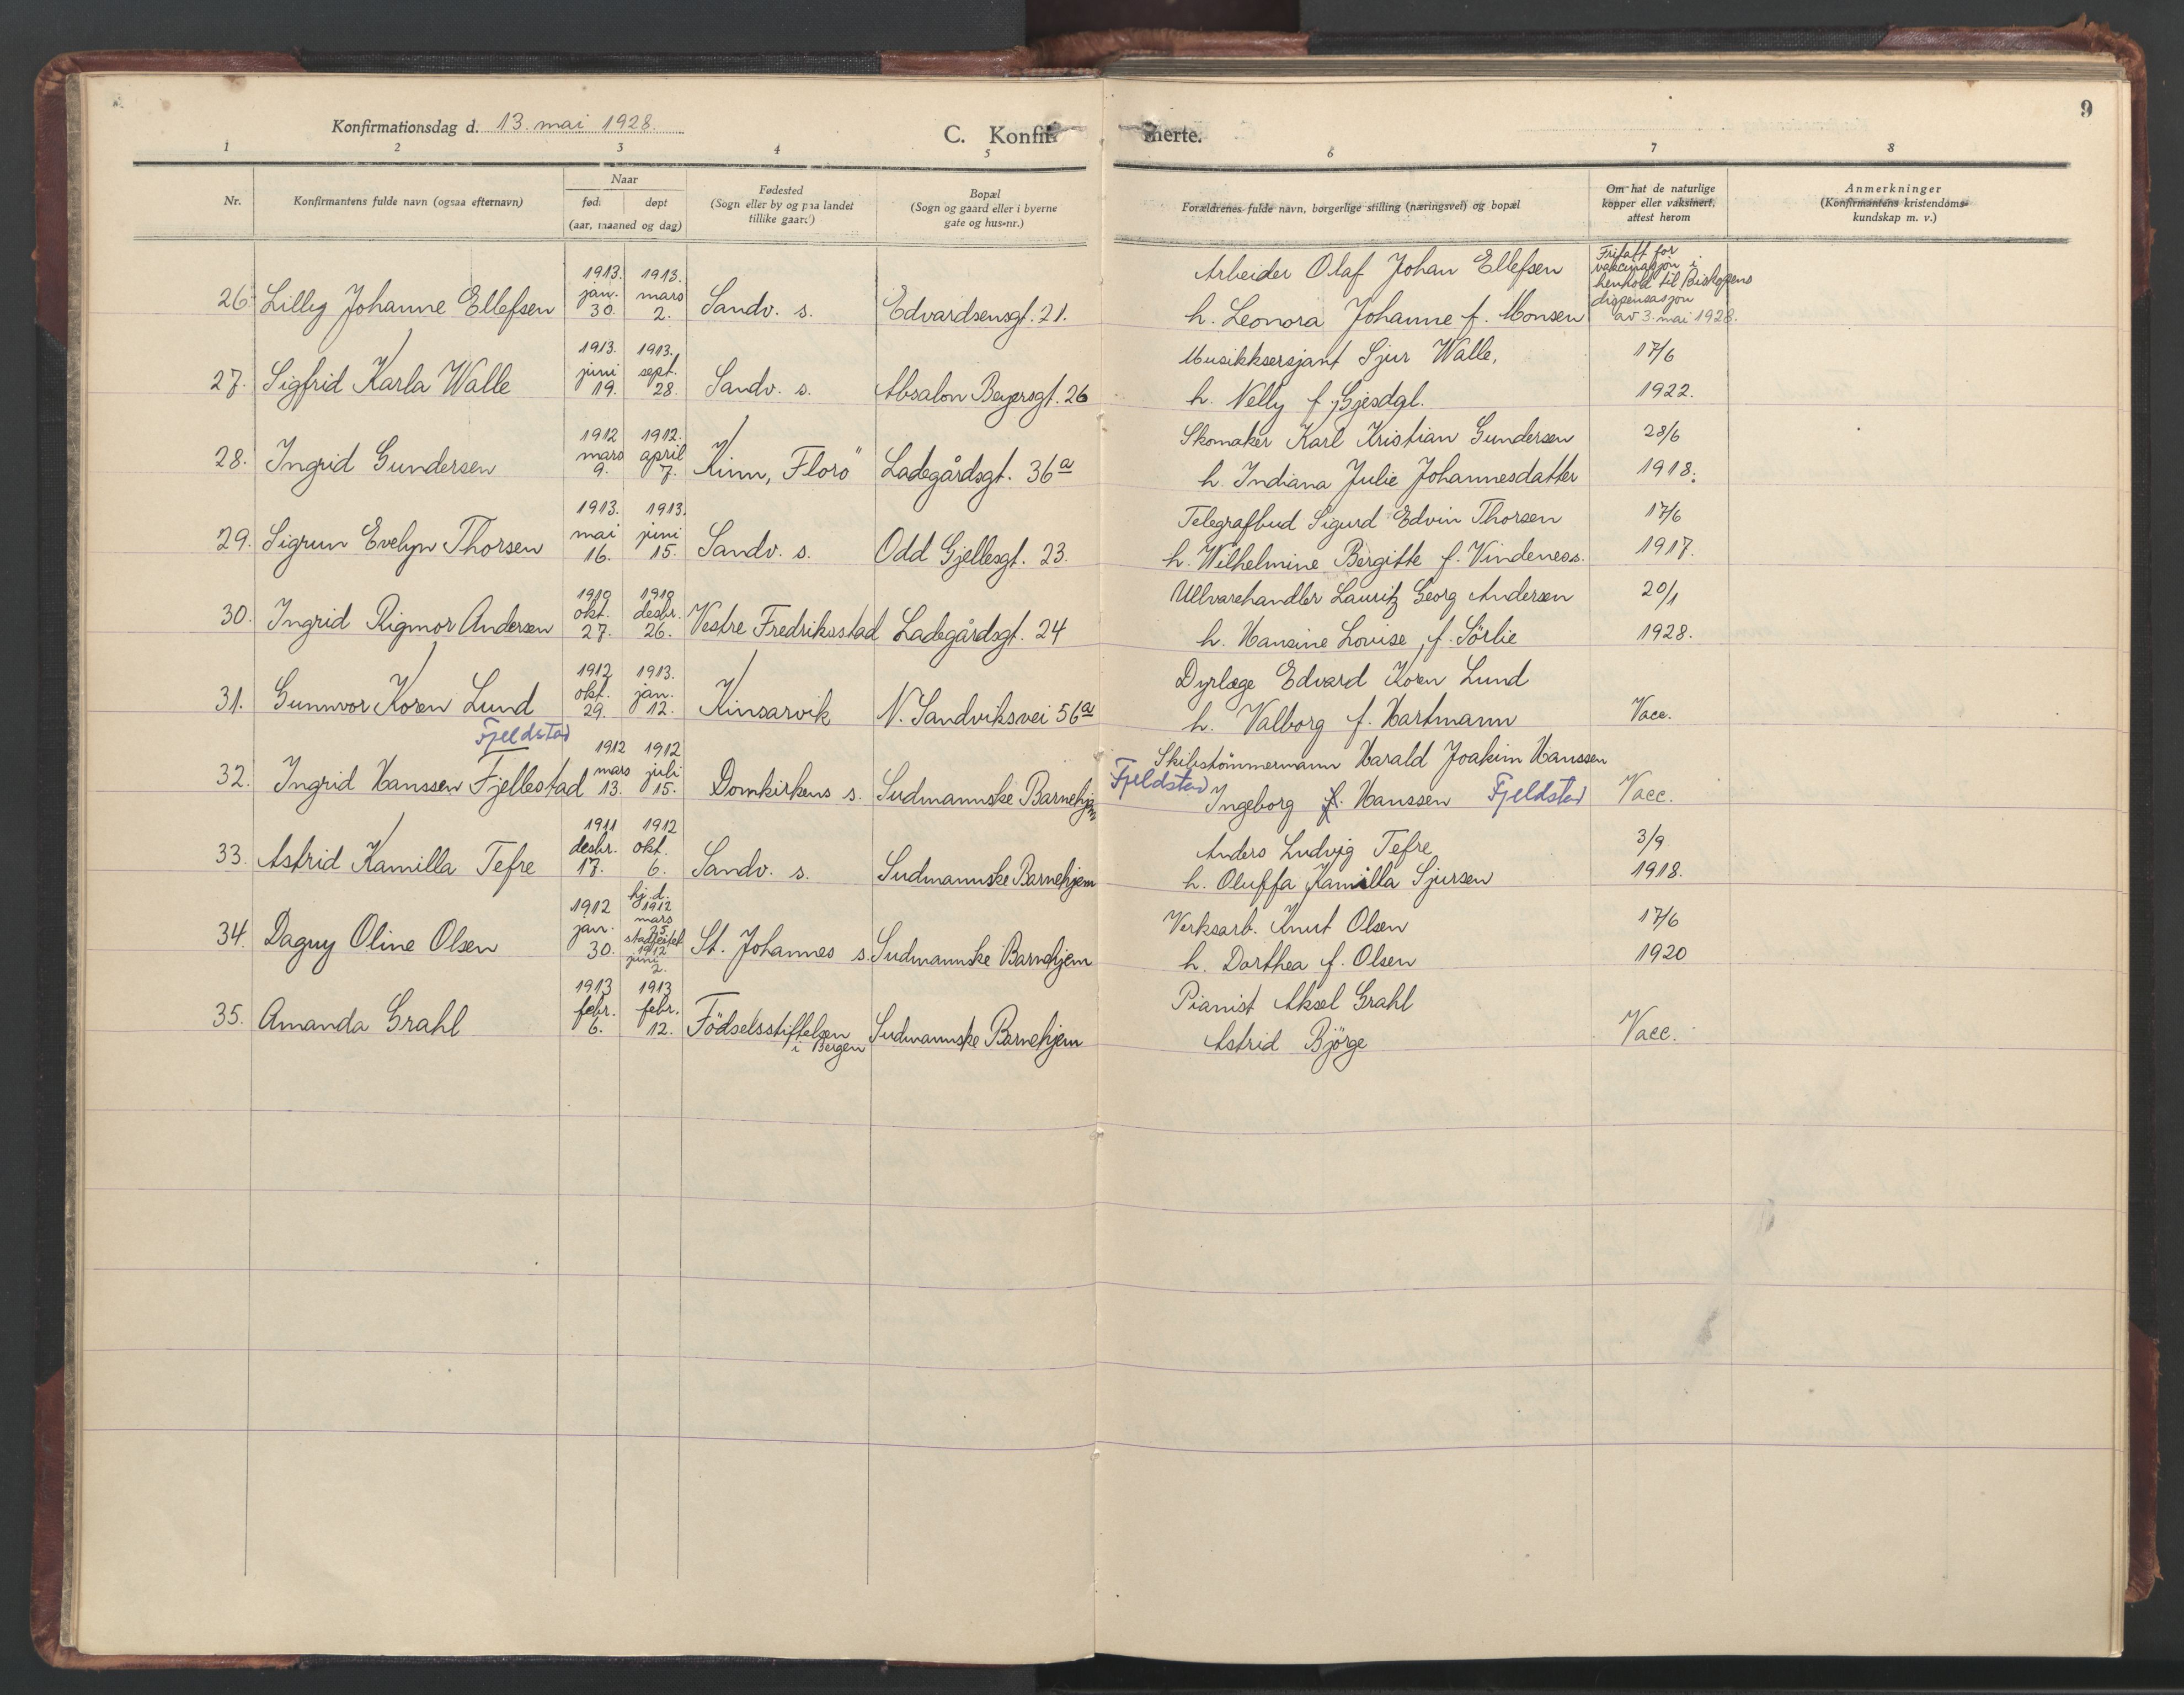 9
Konfirmationsdag d. 13. mai 1928.
C. Konfir- merte.
1 2 3 4 5 6 7 8
Nr.
Konfirmantens fulde navn (ogsaa efternavn)
Naar
født døpt
(aar, maaned og dag)
Fødested
(Sogn eller by og paa landet
tillike gaard)
Bopæl
(Sogn og gaard eller i byerne
gate og hus-nr.)
Forældrenes fulde navn, borgerlige stilling (næringsvei) og bopæl
Om hat de naturlige
kopper eller vaksinert,
attest herom
Anmerkninger
(Konfirmantens kristendoms-
kundskap m. v.)
26. Lilly Johanne Ellefsen
1913. jan. 30.
1913. mars 2.
Sandv. s.
Edvardsensgt. 21.
Arbeider Olaf Johan Ellefsen
h. Leonora Johanne f. Monsen
Fritatt for
vakcinasjon i
henhold til Biskopens
dispensasjon
av 3. mai 1928.
27. Sigfrid Karla Walle
1913. juni 19.
1913. sept. 28.
Sandv. s.
Absalon Beyersgt. 26
Musikksersjant Sjur Walle,
h. Nelly f. Gjesdgl.
17/6
1922.
28. Ingrid Gundersen
1912 mars 9.
1912. april 7.
Kinn, Florö
Ladegårdsgt. 36a
Skomaker Karl Kristian Gundersen
h. Indiana Julie Johannesdatter
28/6
1918.
29. Sigrun Evelyn Thorsen
1913. mai 16.
1913. juni 15.
Sandv. s.
Odd Gjellesgt. 23.
Telegrafbud Sigurd Edvin Thorsen
h. Wilhelmine Bergitte f. Vindeness.
17/6
1917.
30. Ingrid Rigmor Andersen
okt. 27.
desbr. 26.
Vestre Fredriksstad
Ladegårdsgt. 24
Ullvarehandler Lauritz Georg Andersen
h. Hansine Lovise, f. Sörlie
20/1
1928.
31. Gunnvor Koren Lund
1912 okt. 29.
1913. jan. 12.
Kinsarvik
N. Sandviksvei 56a
Dyrlæge Edvard Koren Lund
h. Valborg f. Hartmann
Vacc.
Fjeldstad
32. Ingrid Hanssen Fjellestad
1912 mars 13.
1912 juli 15.
Domkirkens s.
Sudmannske Barnehjem
Skibstömmermann Harald Joakim Hanssen
Fjeldstad Ingeborg f. Hanssen Fjeldstad
Vacc.
33. Astrid Kamilla Tefre
1911 desbr. 17.
1912 okt. 6.
Sandv. s.
Sudmannske Barnehjem
Anders Ludvig Tefre
h. Oluffa Kamilla Sjursen
3/9
1918.
34. Dagny Oline Olsen
1912 jan. 30.
hj. d. 1912 mars 25. stadfestet 1912 juni 2.
St. Johannes s.
Sudmannske Barnehjem
Verksarb. Knut Olsen
h. Dorthea f. Olsen
17/6
1920
35. Amanda Grahl
1913 febr. 6.
1913 febr. 12.
Födselsstiftelsen
i Bergen
Sudmannske Barnehjem
Pianist Aksel Grahl
Astrid Björge
Vacc.